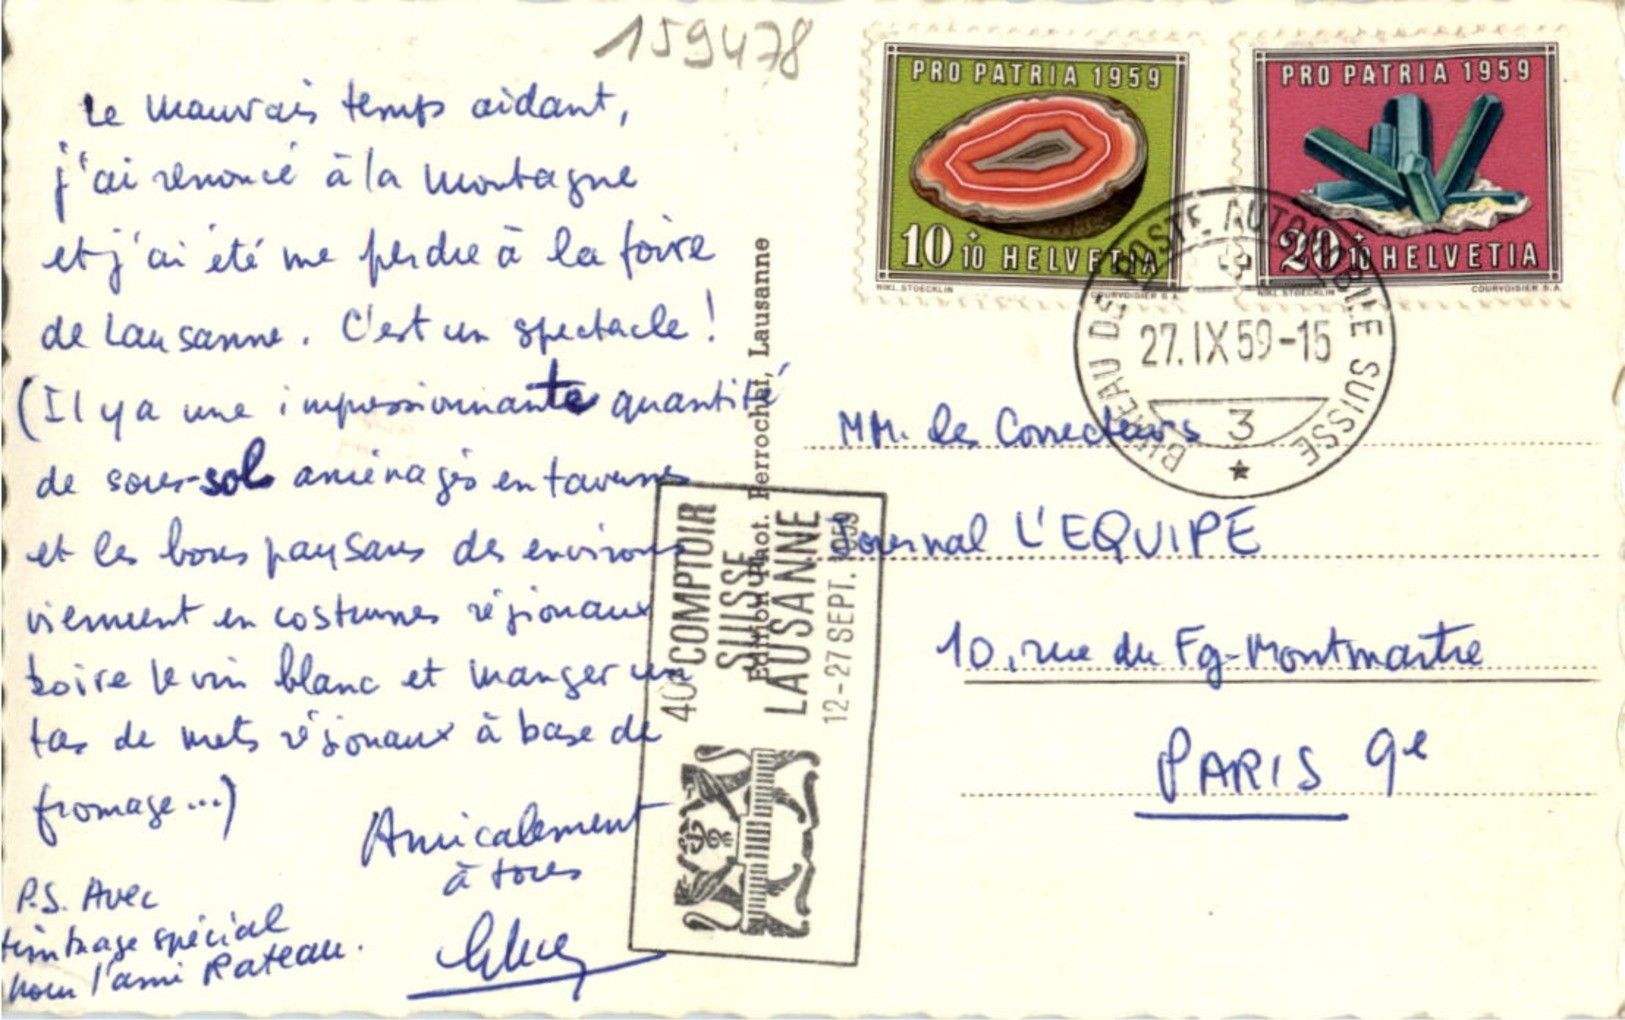 159478
Le mauvais temps aidant,
j'ai renoncé à la montagne
et j'ai été me perdre à la foire
de Lausanne. C'est un spectacle !
(Il y a une impressionnante quantité
de sous-sol aménagés en tavernes
et les bons paysans des environs
viennent en costumes régionaux
boire le vin blanc et manger un
tas de mets régionaux à base de
fromage...)
Amicalement
à tous
P.S. Avec
timbrage spécial
pour l'ami Rateau.
Edition Phot. Perrochet, Lausanne
PRO PATRIA 1959
10+10 HELVETIA
NIKL. STOECKLIN COURVOISIER S.A.
PRO PATRIA 1959
20+10 HELVETIA
NIKL. STOECKLIN COURVOISIER S.A.
BUREAU DE POSTE AUTOMOBILE SUISSE
27.IX 59-15
3
40e COMPTOIR
SUISSE
LAUSANNE
12-27 SEPT. 1959
MM. les Correcteurs
Journal L'EQUIPE
10, rue du Fg-Montmartre
PARIS 9e